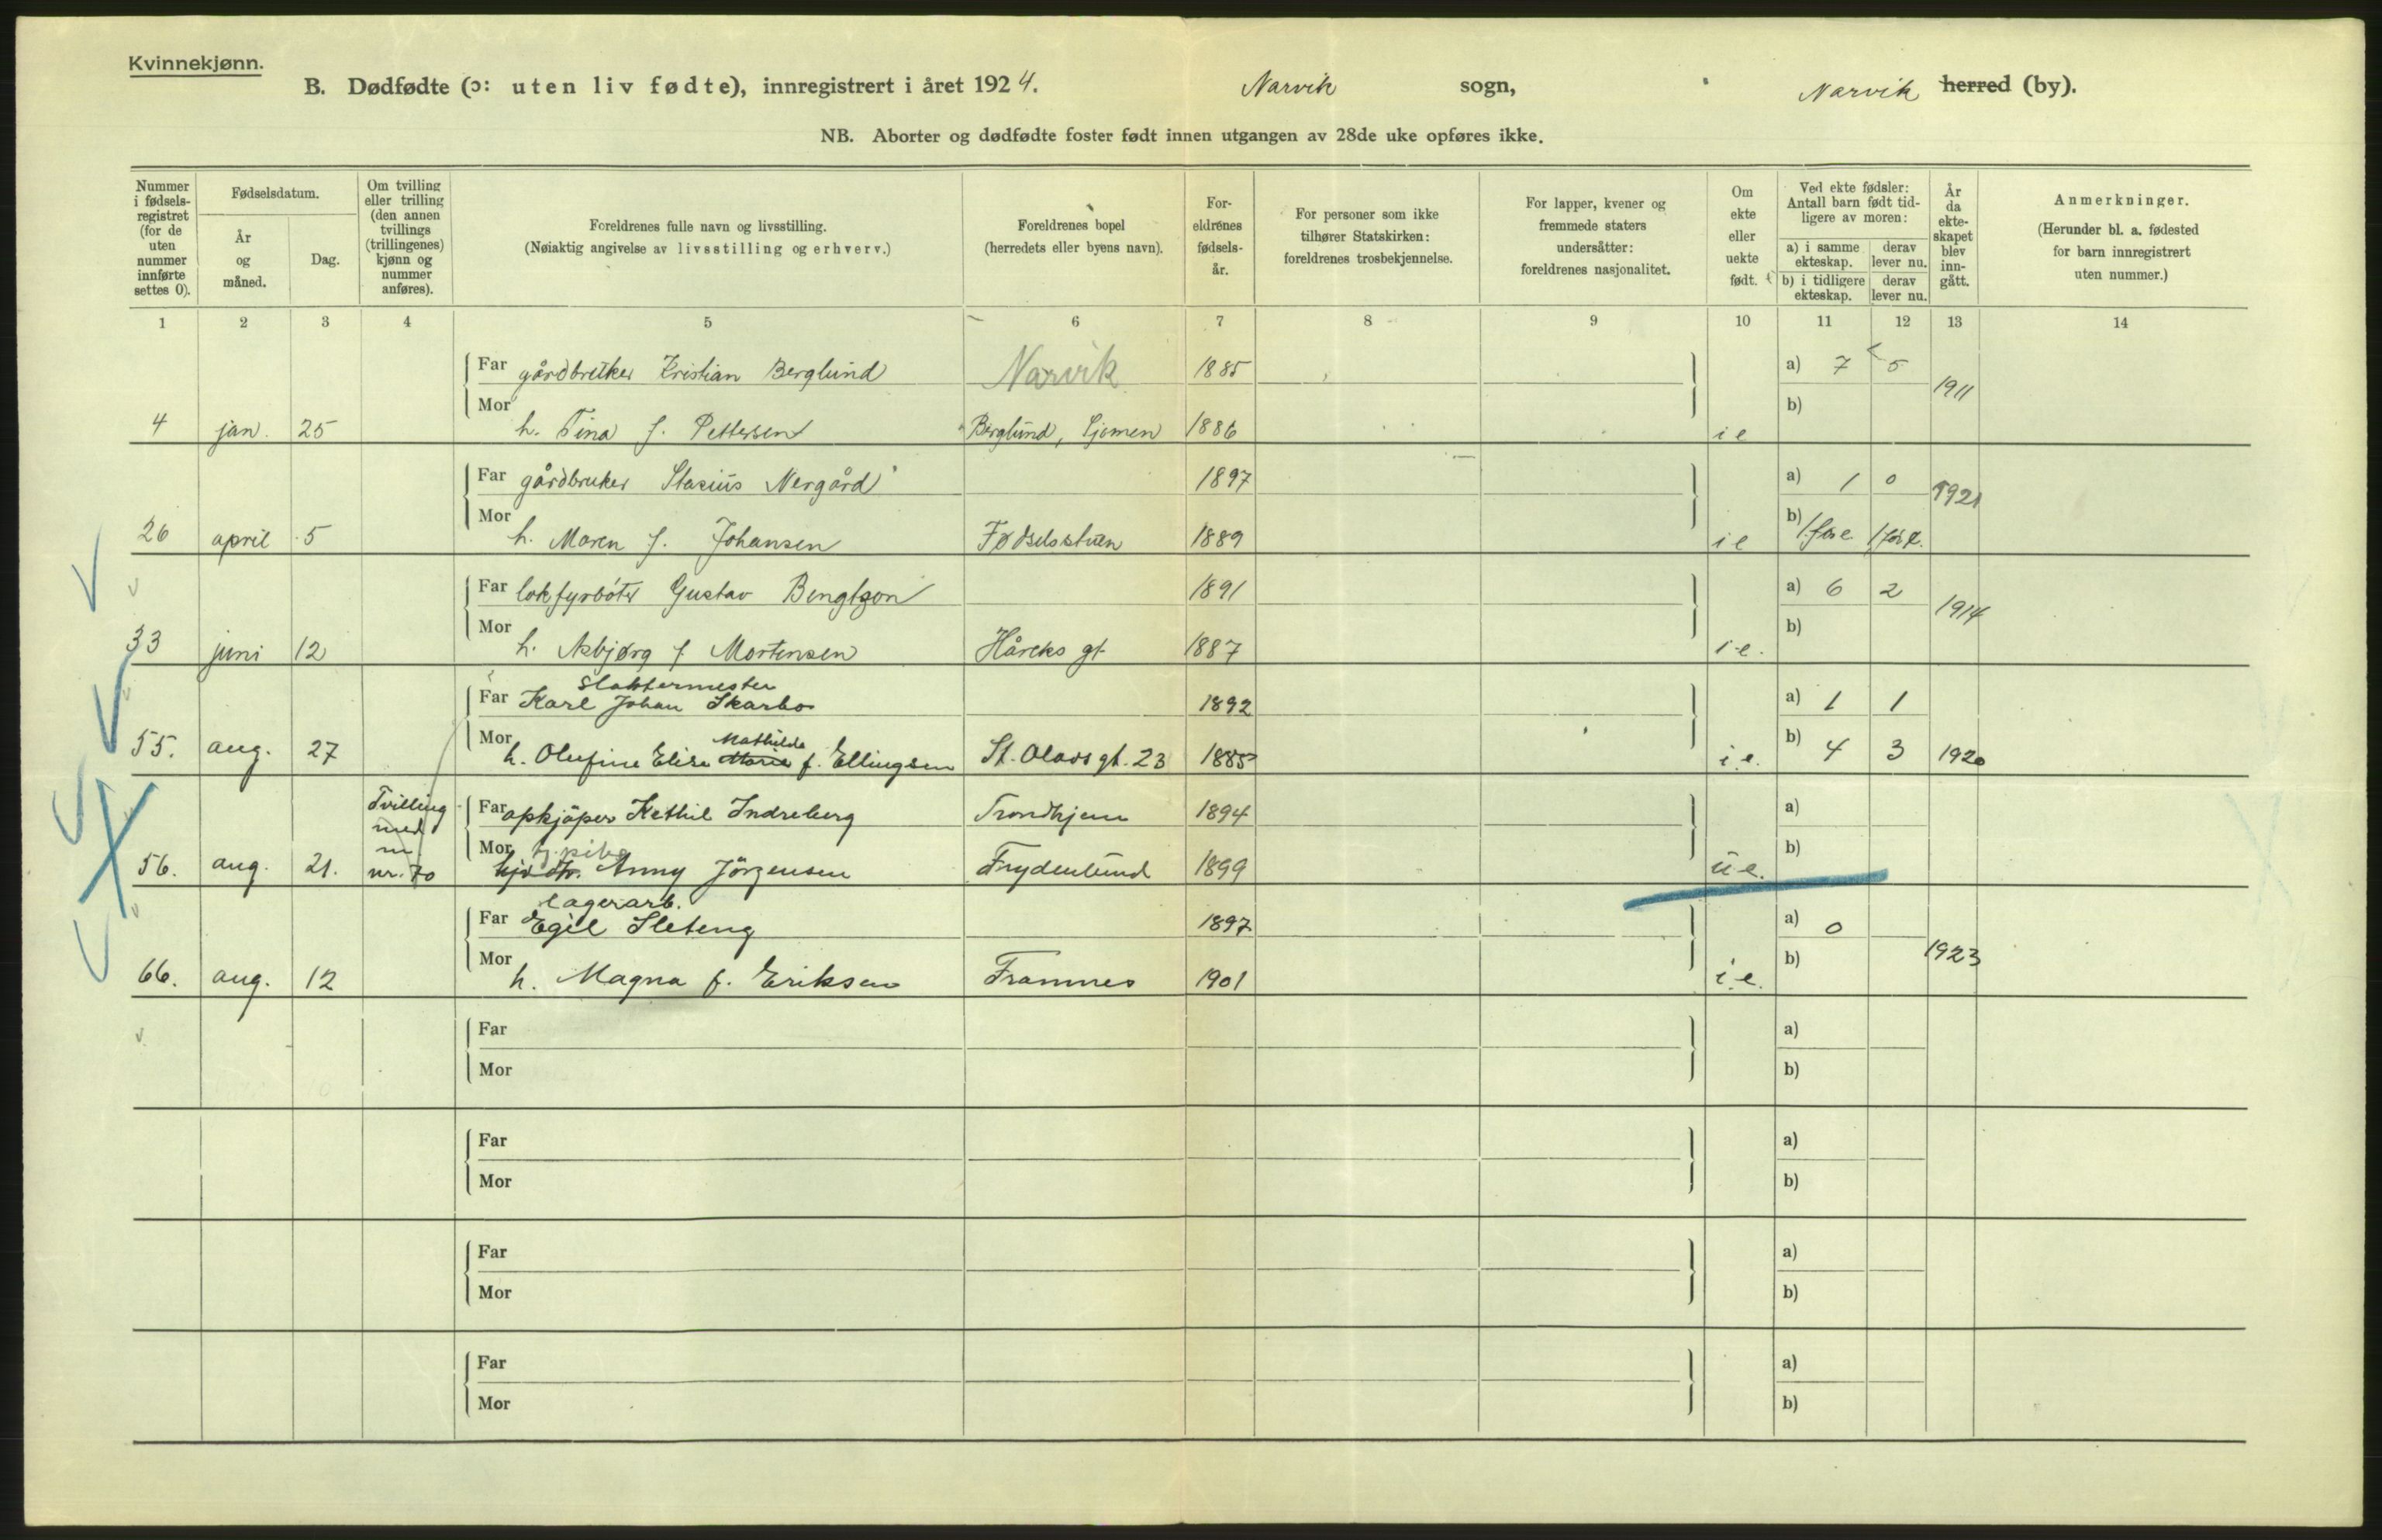 Kvinnekjønn.
B. Dødfødte (ɔ: uten liv fødte), innregistrert i året 1924. Narvik sogn, Narvik herred (by).
NB. Aborter og dødfødte foster født innen utgangen av 28de uke opføres ikke.
Nummer i fødsels-registret (for de uten nummer innførte settes 0).
Fødselsdatum.
År og måned.
Dag.
Om tvilling eller trilling (den annen tvillings (trillingenes) kjønn og nummer anføres).
Foreldrenes fulle navn og livsstilling.
(Nøiaktig angivelse av livsstilling og erhverv.)
Foreldrenes bopel
(herredets eller byens navn).
For-eldrenes fødsels-år.
For personer som ikke tilhører Statskirken: foreldrenes trosbekjennelse.
For lapper, kvener og fremmede staters undersåtter: foreldrenes nasjonalitet.
Om ekte eller uekte født.
Ved ekte fødsler: Antall barn født tid-ligere av moren:
a) i samme ekteskap. derav lever nu.
b) i tidligere ekteskap. derav lever nu.
År da ekte-skapet blev inn-gått.
Anmerkninger.
(Herunder bl. a. fødested for barn innregistrert uten nummer.)
1 2 3 4 5 6 7 8 9 10 11 12 13 14
Far gårdbruker Kristian Berglund Narvik 1885 a) 7 5 1911
4 jan. 25 Mor h. Tina f. Pettersen Berglund, Sjomen 1886 i e b)
Far gårdbruker Stasius Nergård 1897 a) 1 0 1921
26 april 5 Mor h. Maren f. Johansen Fødselsstuen 1889 i e b) 1 før e. 1 før e.
Far lokfyrbøter Gustav Bengtzon 1891 a) 6 2 1914
33 juni 12 Mor h. Asbjørg f. Mortensen Håreks gt 1887 i e. b)
slaktermester
Far Karl Johan Skarbo 1892 a) 1 1
Mathilde
55. aug. 27 Mor h. Olufine Elise Marie f. Ellingsen St. Olavs gt. 23 1885 i. e. b) 4 3 1920
Tvilling med m nr. 70
Far opkjøper Kethil Indreberg Trondhjem 1894 a)
56. aug. 21. Mor Anny Jörgensen Frydenlund 1899 u e. b)
lagerarb.
Far Egil Sleteng 1897 a) 0 1923
66. aug. 12 Mor h. Magna f. Eriksen Framnes 1901 i. e. b)
Far a)
Mor b)
Far a)
Mor b)
Far a)
Mor b)
Far a)
Mor b)